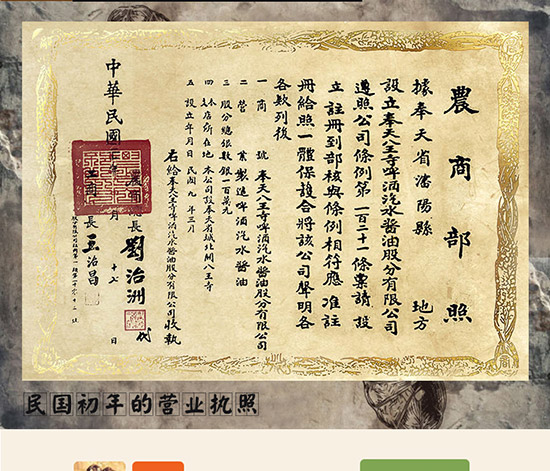 農商部照
據奉天省瀋陽縣 地方
設立奉天八王寺啤酒汽水醬油股分有限公司
遵照公司條例第一百二十一條稟請設
立註冊到部核與條例相符應准註
冊給照一體保護合將該公司聲明各
各欵列後
一 商 號 奉天八王寺啤酒汽水醬油股分有限公司
二 營 業 製造啤酒汽水醬油
三 股分總銀數 銀一百萬元
四 本支店所在地 本公司設奉天省城北關八王寺
五 設立年月日 民國九年三月
右給奉天八王寺啤酒汽水醬油股分有限公司收執
長 劉治洲 代
長 王治昌
中華民國 年 月 日
民国初年的营业执照